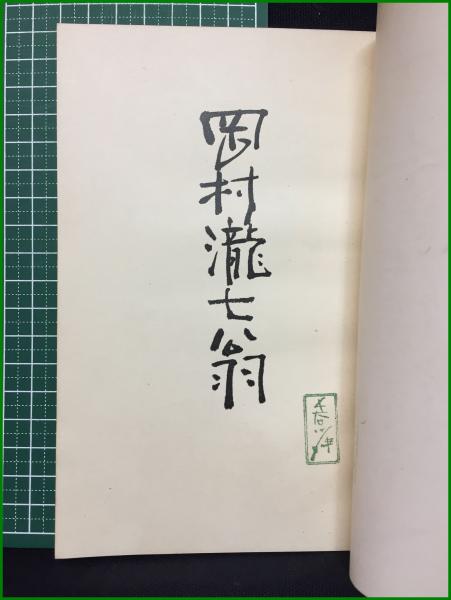 岡村瀧七翁